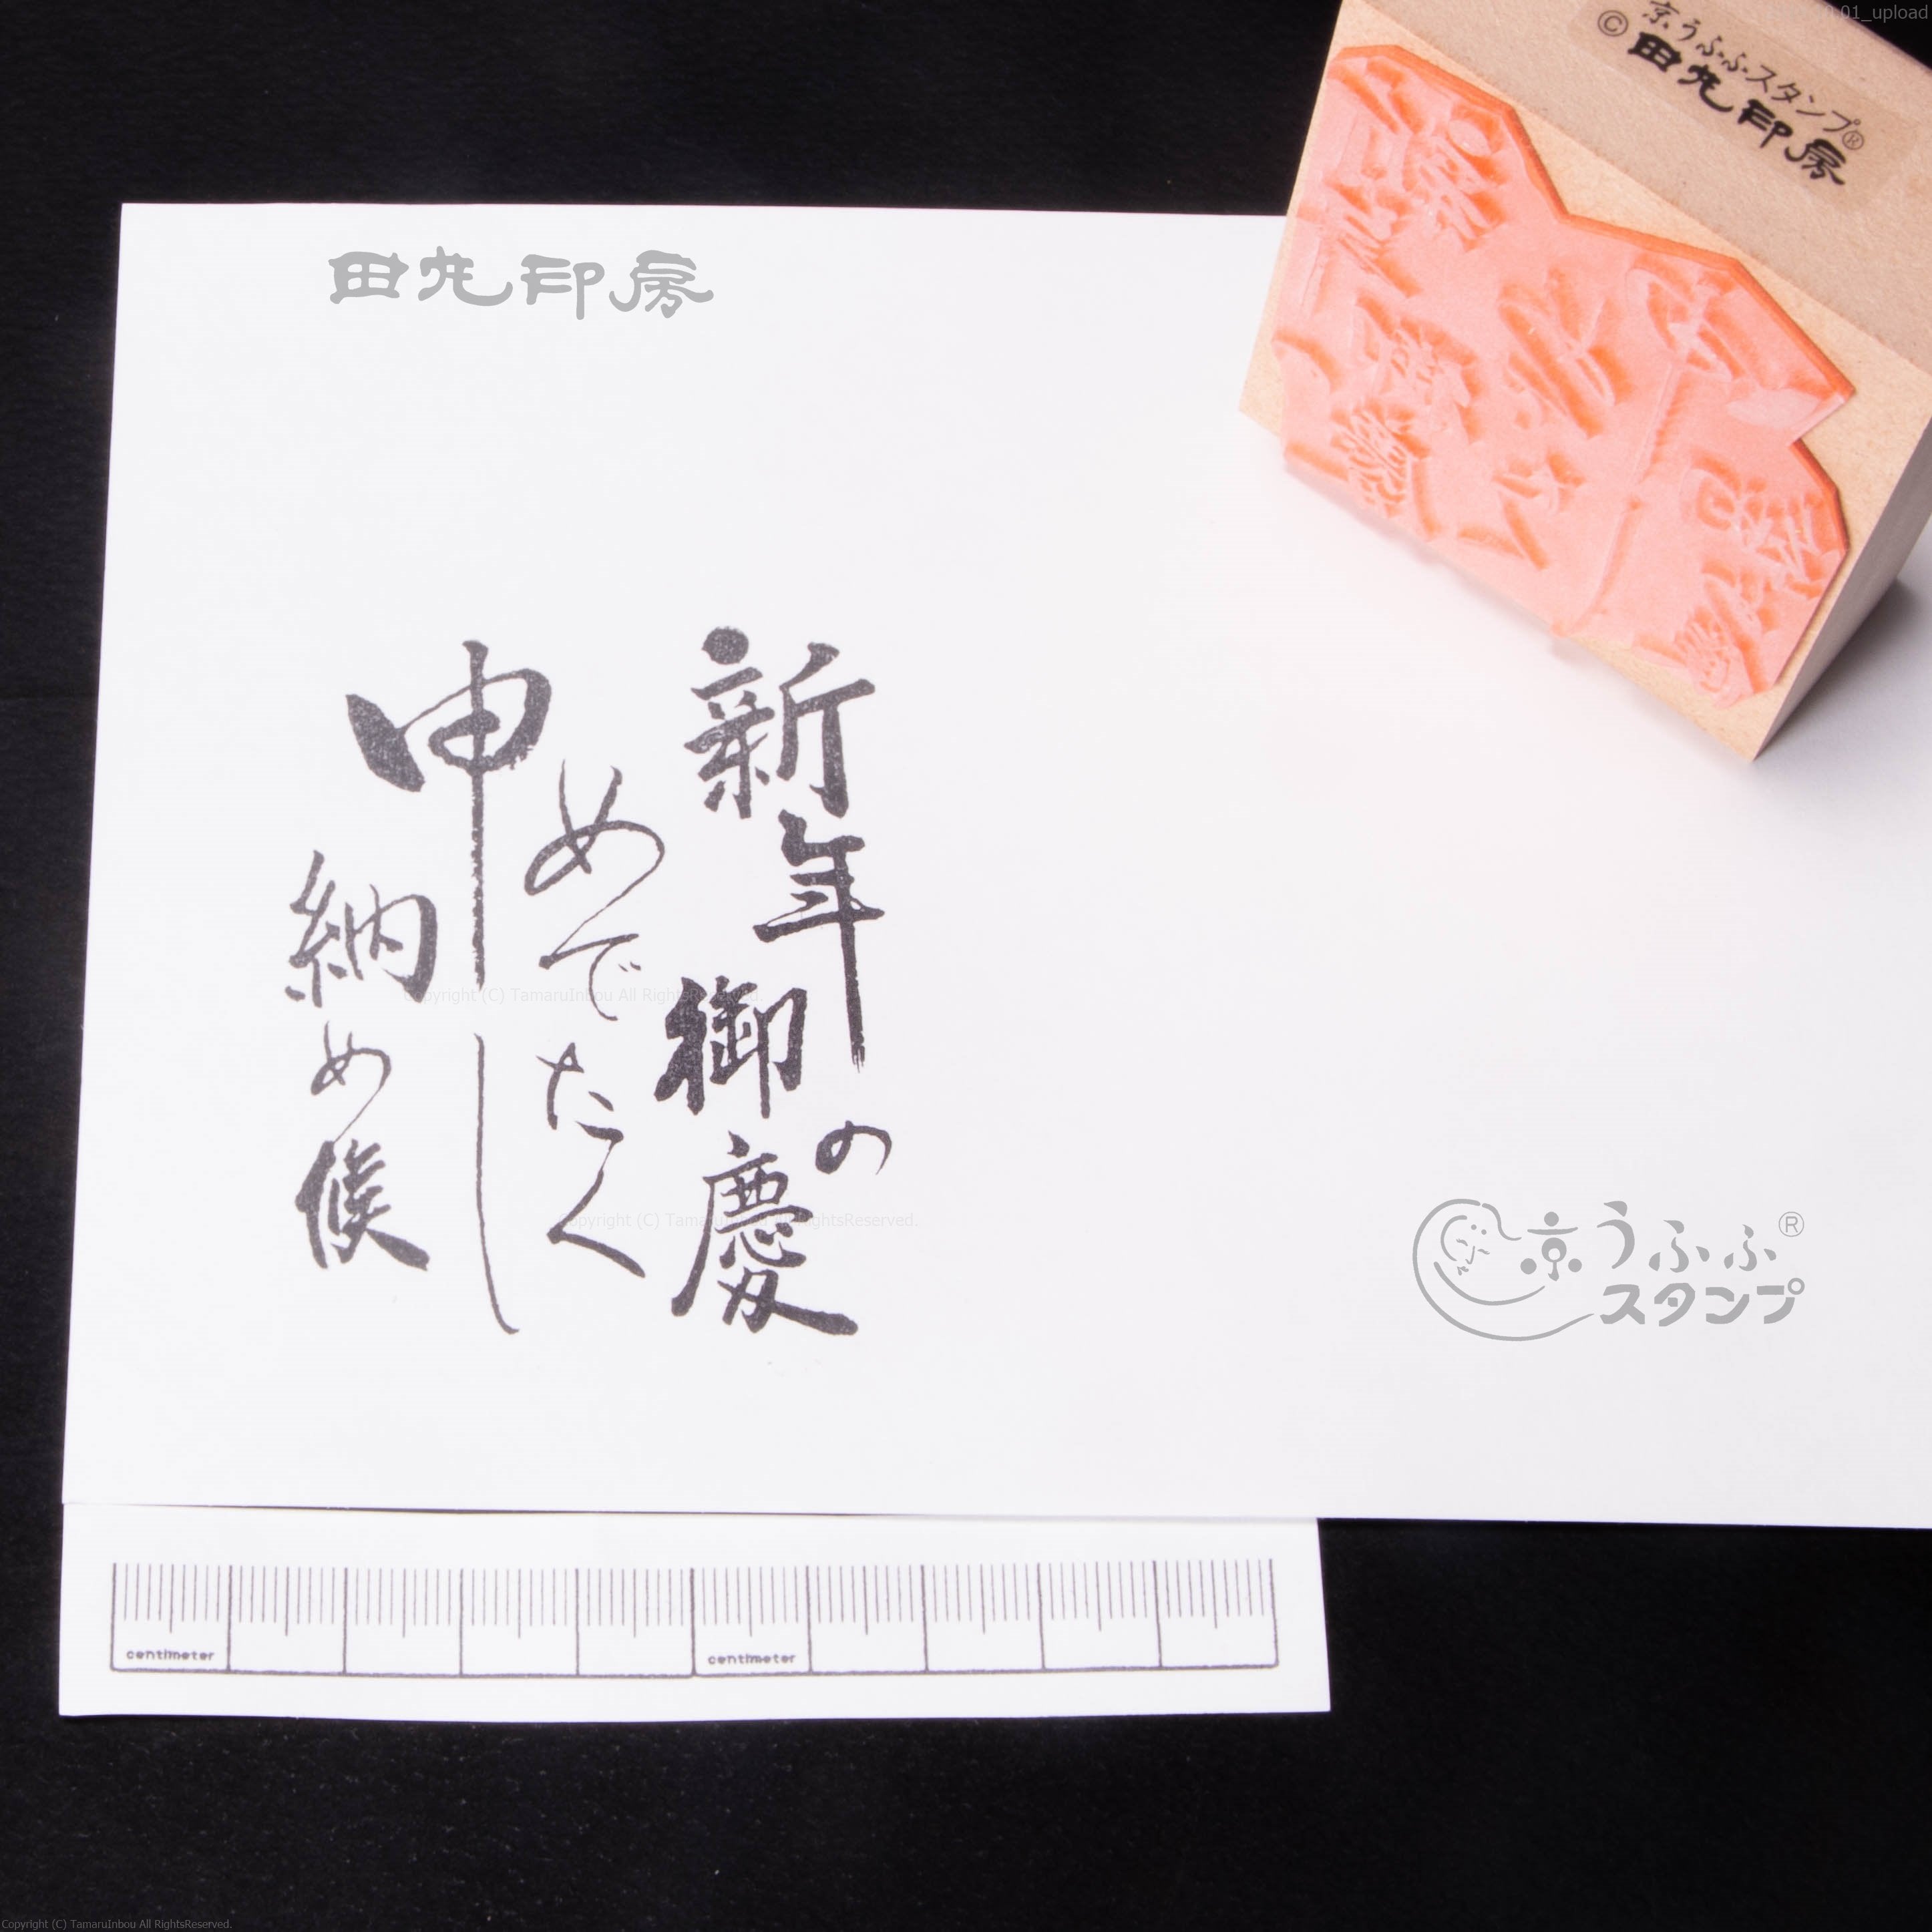 01_upload
京うふふスタンプ®
© 田丸印房
田丸印房
新年の
御慶
めでたく
申し
納め候
Copyright (C) TamaruInbou All RightsReserved.
Copyright (C) TamaruInbou All RightsReserved.
京うふふ®
スタンプ
centimeter centimeter
Copyright (C) TamaruInbou All RightsReserved.